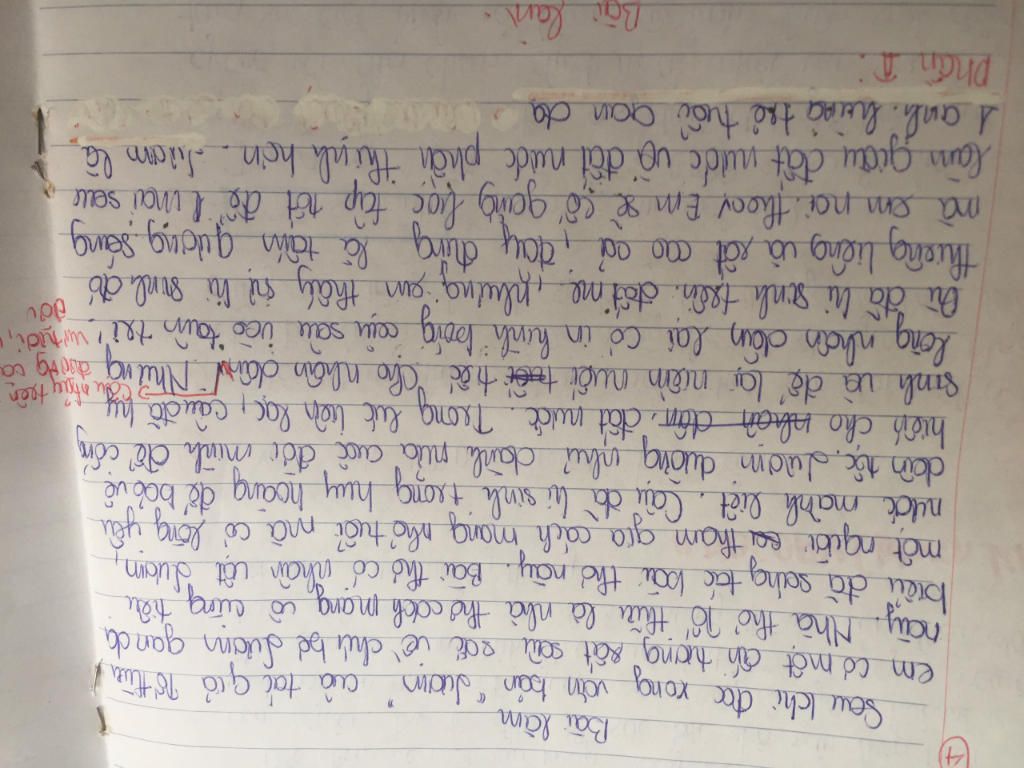 4
Bài làm
Sau khi đọc xong văn bản "Lượm" của tác giả Tố Hữu
em có một ấn tượng rất sâu sắc về chú bé Lượm gan dạ
này. Nhà thơ Tố Hữu là nhà thơ cách mạng vô cùng tiêu
biểu đã sáng tác bài thơ này. Bài thơ có nhân vật Lượm,
một người tham gia cách mạng nhỏ tuổi mà có lòng yêu
nước mãnh liệt. Cậu đã hi sinh trong huy hoàng để bảo vệ
dân tộc. Lượm dường như dành nửa cuộc đời mình để cống
hiến cho nhân dân đất nước. Trong lúc liên lạc, cậu đã hy
sinh và để lại niềm nuối tiếc cho nhân dân. Nhưng
lòng nhân dân lại có in hình bóng cậu sâu vào tâm trí.
Dù đã hi sinh trên đất mẹ, nhưng em thấy sự hi sinh đó
thiêng liêng và rất cao cả, đây đúng là tấm gương sáng
mà em noi theo. Em sẽ cố gắng học tập tốt để mai sau
làm giàu đất nước và đất nước phồn thịnh hơn. Lượm là
1 anh hùng trẻ tuổi gan dạ
Phần II:
Bài làm.